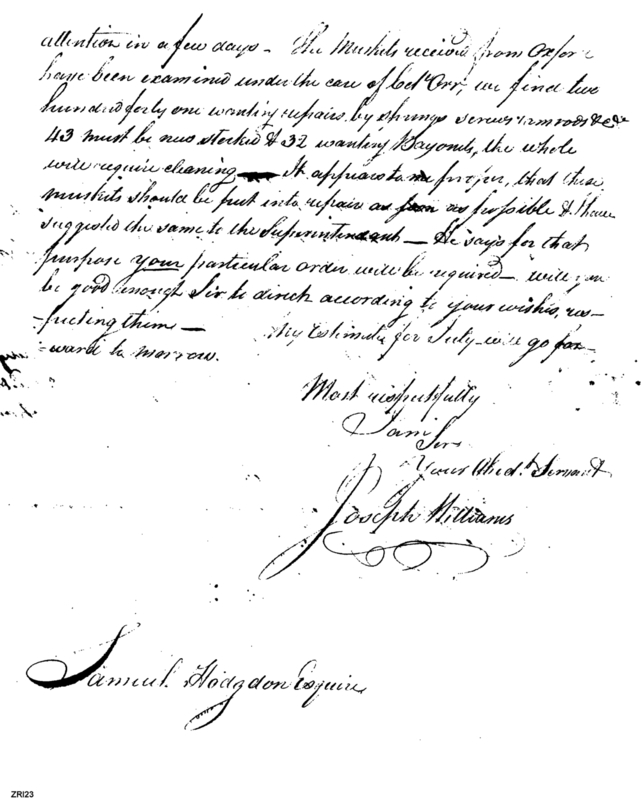 attention in a few days - The Muskets received from Oxford
have been examined under the care of Colo. Orr, we find two
hundred forty one wanting repairs by springs screws ramrods &c &c
43 must be new stocked & 32 wanting Bayonets, the whole
will require cleaning - It appears to me proper, that these
muskets should be put into repair as soon as possible & I have
suggested the same to the Superintendant - He says for that
purpose your particular order will be required - will you
be good enough Sir to direct according to your wishes, res-
-pecting them - My Estimate for July will go for-
-ward to morrow.
Most respectfully
I am
Sir
Your Obedt. Servant
Joseph Williams
Samuel Hodgdon Esquire
ZRI23